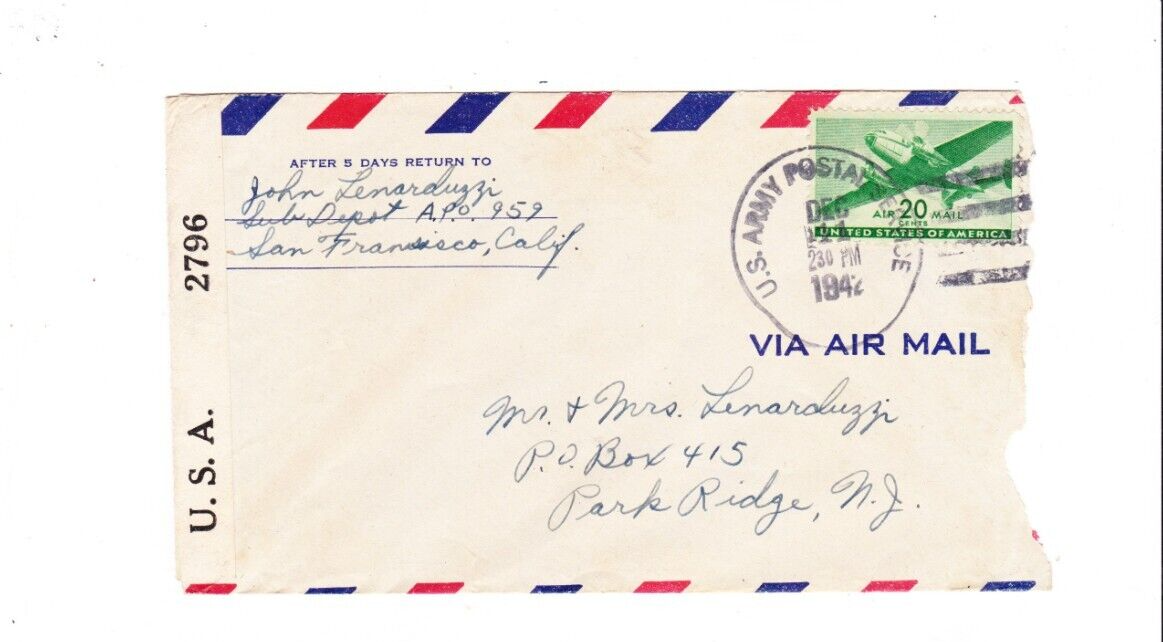 AFTER 5 DAYS RETURN TO
John Lenarduzzi
Sub Depot A.P.O. 959
San Francisco, Calif.
U.S.A. 2796
U.S. ARMY POSTAL SERVICE
DEC
230 PM
1942
AIR 20 MAIL
CENTS
UNITED STATES OF AMERICA
VIA AIR MAIL
Mr. & Mrs. Lenarduzzi
P.O. Box 415
Park Ridge, N.J.